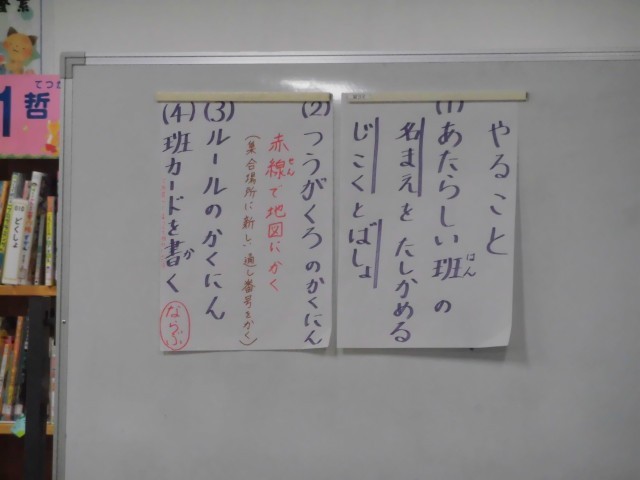 やること
(1)あたらしい班の
はん
名まえをたしかめる
じこくとばしょ
(2)つうがくろのかくにん
赤線で地図にかく
せん
(集合場所に新しい通し番号をかく)
(3)ルールのかくにん
(4)班カードを書く
か
ならぶ
1哲
どくしょ